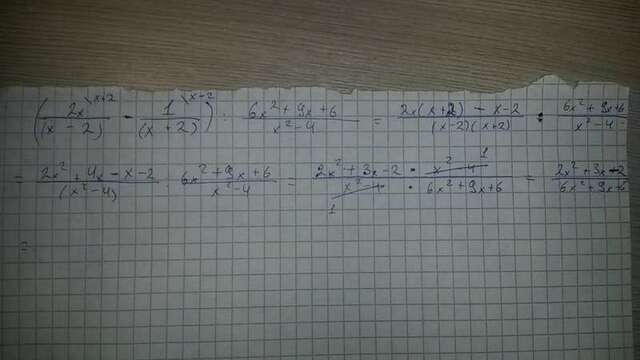 (2x \x+2 / (x-2) - 1 \x+2 / (x+2)) : 6x²+9x+6 / x²-4 = 2x(x+2) - x-2 / (x-2)(x+2) : 6x²+9x+6 / x²-4
= 2x²+4x-x-2 / (x²-4) . 6x²+9x+6 / x²-4 = 2x²+3x-2 / x²-4 1 · x²-4 1 / 6x²+9x+6 = 2x²+3x-2 / 6x²+9x+6
=